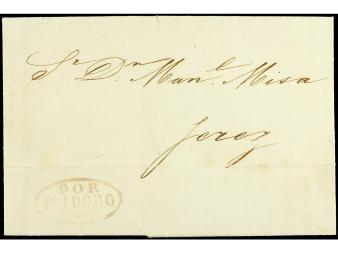 Sr. Dn. Manl. Misa
Jerez
POR
ISIDORO